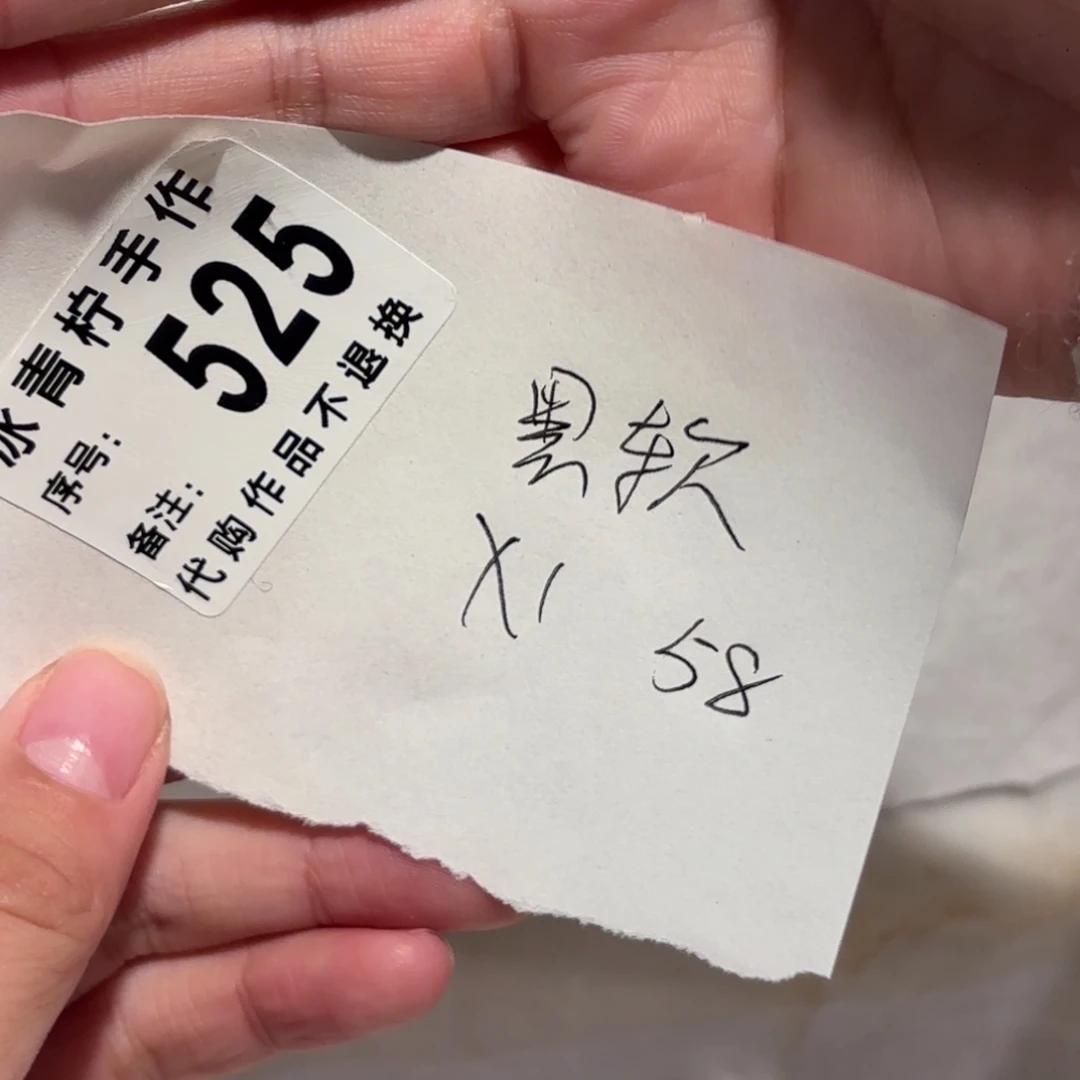 冰青柠手作
序号:
525
备注:
代购作品不退换
黑软
X1
58